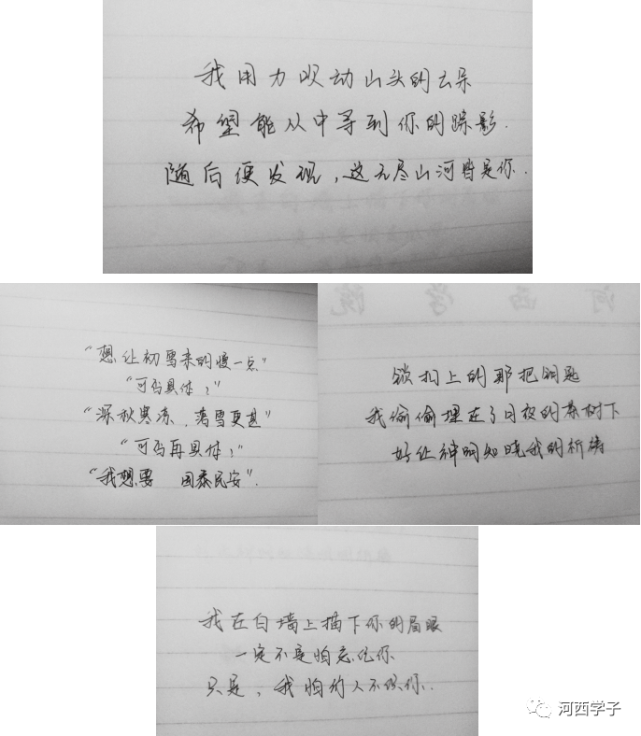 我用力吹动山头的云朵
希望能从中寻到你的踪影.
随后便发现，这无尽山河皆是你.
河西学院
“想让初雪来的慢一点”
“可否具体？”
“深秋寒冻，落雪更甚”
“可否再具体？”
“我想要 国泰民安”.
锁扣上的那把钥匙
我偷偷埋在了日夜的茶树下
好让神明知晓我的祈祷
我在白墙上描下你的眉眼
一定不是怕忘记你
只是，我怕旁人不识你.
河西学子